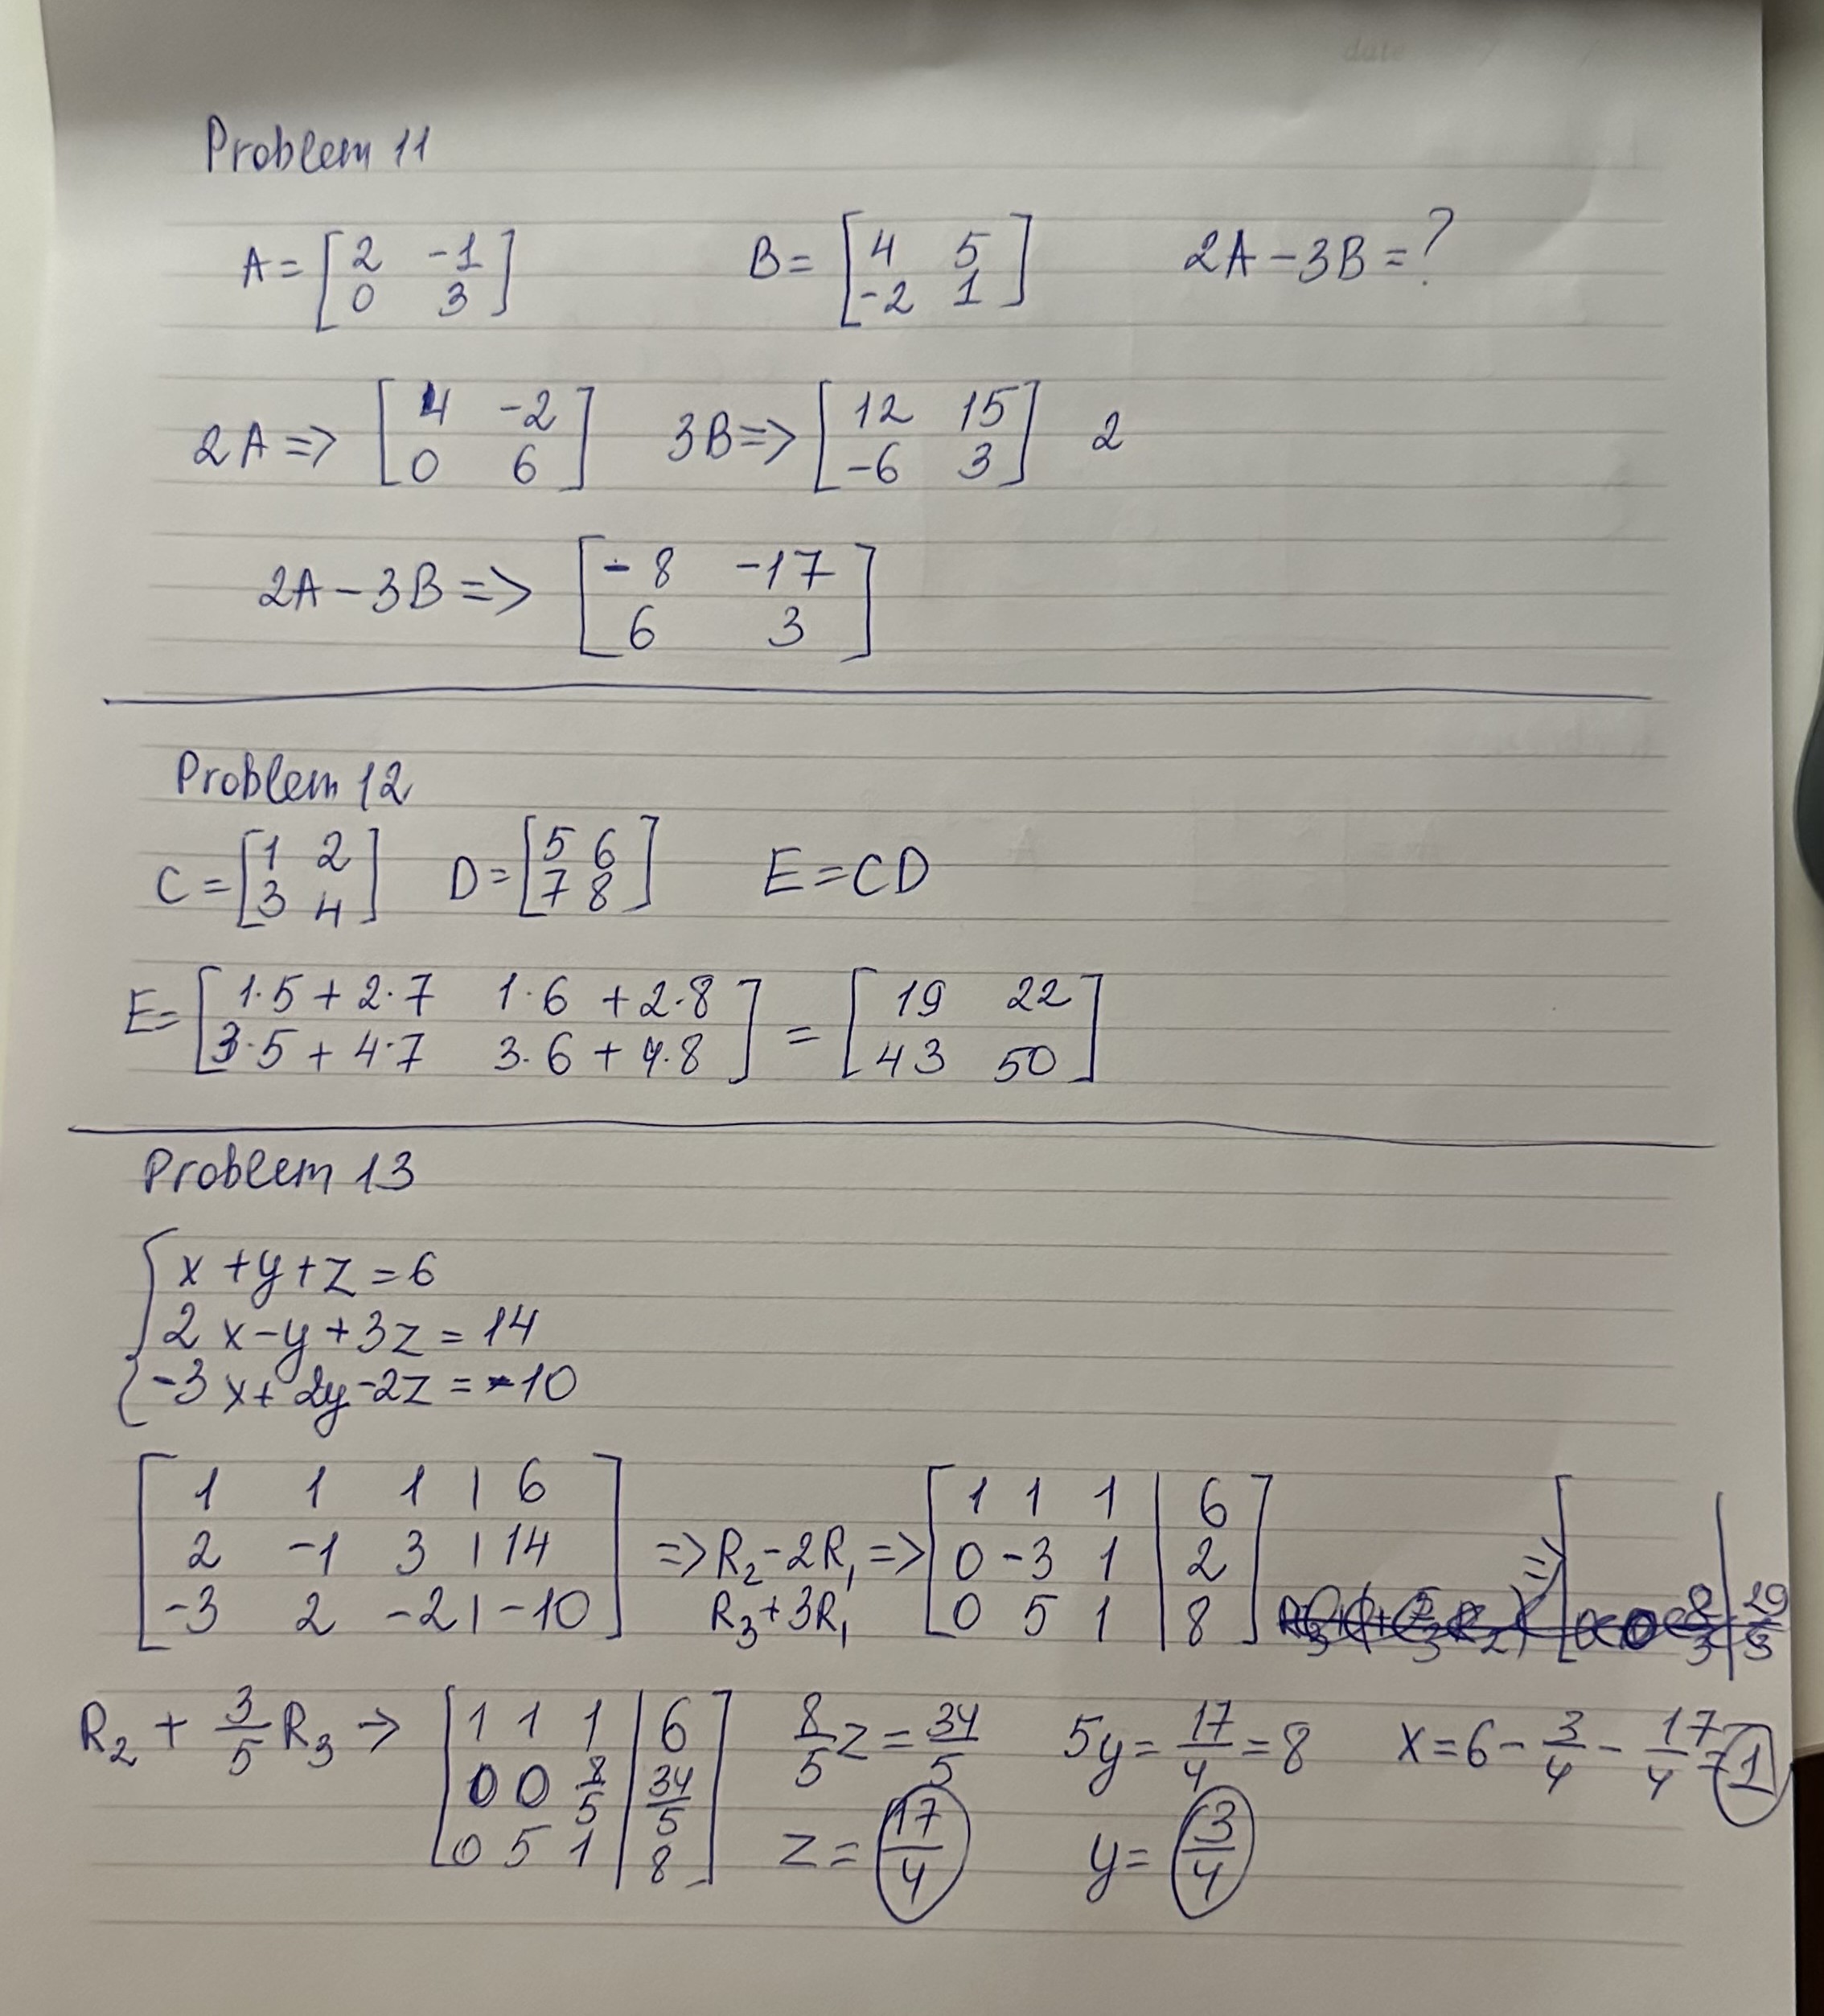 Problem 11
A = [2 -1; 0 3] B = [4 5; -2 1] 2A - 3B = ?
2A => [4 -2; 0 6] 3B => [12 15; -6 3] 2
2A - 3B => [-8 -17; 6 3]
Problem 12
C = [1 2; 3 4] D = [5 6; 7 8] E = CD
E = [1·5 + 2·7 1·6 + 2·8; 3·5 + 4·7 3·6 + 4·8] = [19 22; 43 50]
Problem 13
x + y + z = 6
2x - y + 3z = 14
-3x + 2y - 2z = -10
[1 1 1 | 6; 2 -1 3 | 14; -3 2 -2 | -10] => R₂ - 2R₁ R₃ + 3R₁ => [1 1 1 | 6; 0 -3 1 | 2; 0 5 1 | 8] => [
R₂ + 3/5 R₃ → [1 1 1 | 6; 0 0 8/5 | 34/5; 0 5 1 | 8] 8/5 z = 34/5 5y = 17/4 = 8 x = 6 - 3/4 - 17/4 = 1
z = 17/4 y = 3/4